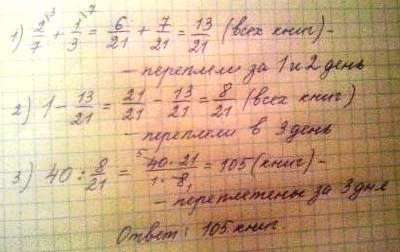 1) 2/7 + 1/3 = 6/21 + 7/21 = 13/21 (всех книг) -
- переплели за 1 и 2 день
2) 1 - 13/21 = 21/21 - 13/21 = 8/21 (всех книг)
- переплели в 3 день
3) 40 : 8/21 = 40 · 21 / 1 · 8 = 105 (книг) -
- переплетены за 3 дня
Ответ: 105 книг.